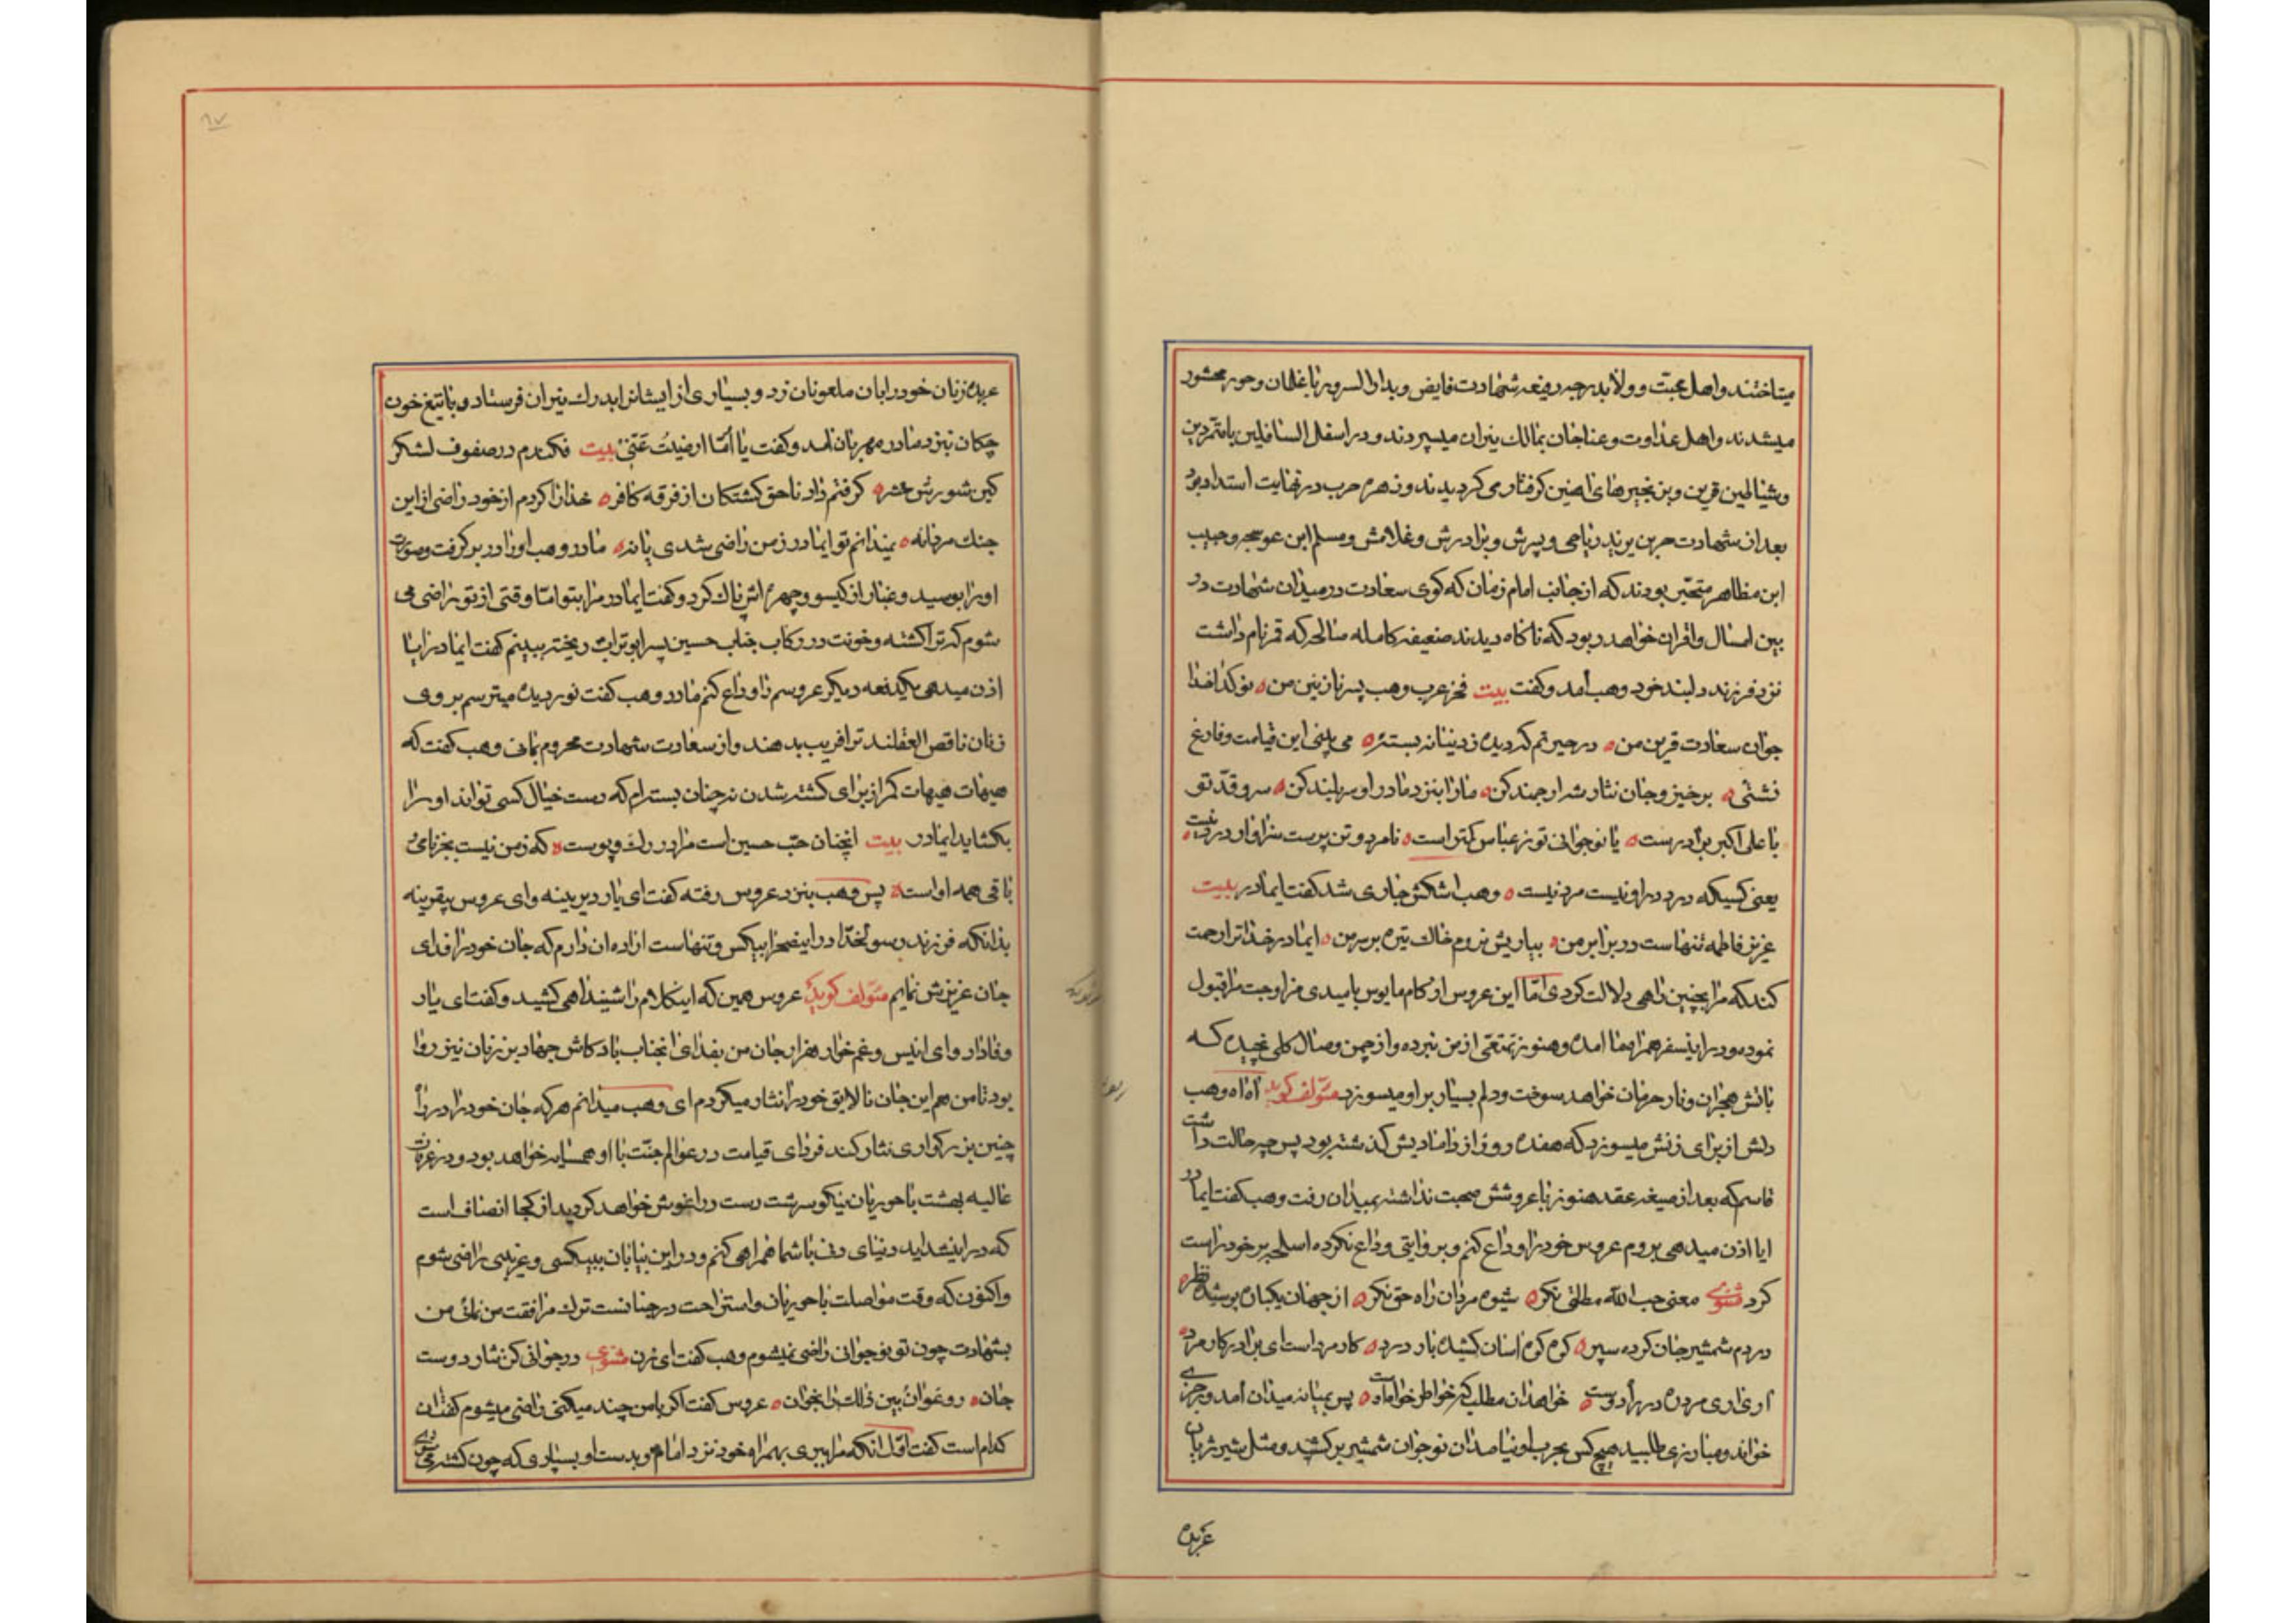 میتاختند و اهل محبت و ولا بدرجه رفیعه شهادت فایض و بدار السرور با غلمان و حور محشور
میشدند و اهل عداوت و عنا جان بمالک نیران میسپردند و در اسفل السافلین با متمردین
و شیاطین قرین و بزنجیرهای اهنین گرفتار می کردیدند و زهره حرب در نهایت استداد بود
بعد از شهادت حر بن یزید ریاحی و پسرش و برادرش و غلامش و مسلم ابن عوسجه و حبیب
ابن مظاهر متحیر بودند که از جانب امام زمان که کوی سعادت در میدان شهادت در
بین امثال و اقران خواهد ربود که ناکاه دیدند ضعیفه کامله صالحه که قمر نام داشت
نزد فرزند دلبند خود وهب آمد و کفت بیت فخر عرب وهب پسر نازنین من ه نوکدخدا
جوان سعادت قرین من ه در حیرتم که دیده ز دنیا نه بسته ه می بینی این قیامت و فارغ
نشستی ه برخیز و جان نثار شه ارجمند کن ه ما را بنزد مادر او سربلند کن ه سرو قد تو
با علی اکبر برادر است ه یا نوجوانی تو ز عباس کمتر است ه نامرد و تن پرست سزاوار درد نیست ه
یعنی کسیکه درد در او نیست مرد نیست ه وهب اشکش جاری شد کفت ایمادر بیت
عزیز فاطمه تنهاست در برابر من ه بیاریش نروم خاک تیره بر سر من ه ایمادر خدا ترا رحمت
کند که مرا بچنین راهی دلالت کردی اما این عروس از کام مایوس بامیدی مزاوجت مرا قبول
نموده و در اینسفر همراه ما امده و هنوز تمتعی از من نبرده و از چمن وصال کلی نچیده که
باتش هجران و نار حرمان خواهد سوخت و دلم بسیار بر او میسوزد مؤلف کوید اه اه وهب
دلش از برای زنش میسوزد که هفده روز از دامادیش کذشته بود پس چه حالت داشت
قاسم که بعد از صیغه عقد هنوز با عروسش صحبت نداشته بمیدان رفت وهب کفت ایمادر
ایا اذن میدهی بروم عروس خود را وداع کنم و بروایتی وداع نکرده اسلحه بر خود راست
کرد مثنوی معنی حب الله مطلق نکر ه شیوه مردان راه حق نکر ه از جهان یکباره پوشیده نظر ه
در دم شمشیر جان کرده سپر ه کوه کوه اسان کشیده بار درد ه کار مرد است ای برادر کار مرد ه
اری اری مردن در راه دوست ه خواهد ان مطلب که خاطر خواه اوست ه پس بمیانه میدان آمد و رجزی
خواند و مبارزی طلبید هیچ کس بحرب او نیامد ان نوجوان شمشیر بر کشید و مثل شیر ژیان
عربده
عربده زنان خود را بان ملعونان زد و بسیاری از ایشانرا بدرک نیران فرستاد و با تیغ خون
چکان بنزد مادر مهربان آمد و کفت یا اماه ارضیت عنی بیت فکندم در صفوف لشکر
کین شورش محشر ه کرفتم داد ناحق کشتکان از فرقه کافر ه خدا را کردم از خود راضی از این
جنک مردانه ه نمیدانم تو ایمادر ز من راضی شدی یا نه ه مادر وهب او را در بر کرفت و صورت
او را بوسید و غبار از کیسو و چهره اش پاک کرد و کفت ایمادر مرا بتو اما وقتی از تو راضی می
شوم که ترا کشته و خونت در رکاب جناب حسین پسر ابوتراب ریخته ببینم کفت ایمادر ایا
اذن میدهی یکدفعه دیکر عروسم را وداع کنم مادر وهب کفت نوردیده میترسم بروی
زنان ناقص العقلند ترا فریب بدهند و از سعادت شهادت محروم بمانی وهب کفت که
هیهات هیهات کمر از برای کشته شدن نه چنان بسته ام که دست خیال کسی تواند او را
بکشاید ایمادر بیت انچنان حب حسین است مرا در رک و پوست ه که ز من نیست بجز نامی و
باقی همه اوست ه پس وهب بنزد عروس رفته کفت ای یار دیرینه و ای عروس بیقرینه
بدانکه فرزند رسولخدا در اینصحرا بیکس و تنهاست اراده ان دارم که جان خود را فدای
جان عزیزش نمایم مؤلف کوید عروس همین که اینکلام را شنید آهی کشید و کفت ای یار
وفادار و ای انیس و غم خوار هزار جان من بفدای انجناب باد کاش جهاد بر زنان نیز روا
بود تا من هم این جان نالایق خود را نثار میکردم ای وهب میدانم هر که جان خود را در راه
چنین بزرکواری نثار کند فردای قیامت در عوالم جنت با او همسایه خواهد بود و در غرفات
عالیه بهشت با حوریان نیکو سرشت دست در اغوش خواهد کردید از کجا انصاف است
که در اینشداید دنیای دنی با شما همراهی کنم و در این بیابان ببیکسی و غریبی راضی شوم
و اکنون که وقت مواصلت با حوریان و استراحت در جنانست ترک مرافقت من نمائی من
بشهادت چون تو نوجوانی راضی نمیشوم وهب کفت ای زن مثنوی در جوانی کن نثار دوست
جان ه رو عوان بین ذلک را بخوان ه عروس کفت اکر با من چند میکنی راضی میشوم کفت ان
کدام است کفت اول انکه مرا ببری بهمراه خود نزد امام و بدست او بسپاری که چون کشته می شوی